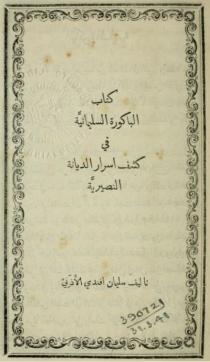 كتاب
الباكورة السليمانيَّة
في
كشف اسرار الديانة
النصيريَّة
تاليف سليمان افندي الأذني
390721
31.3.41